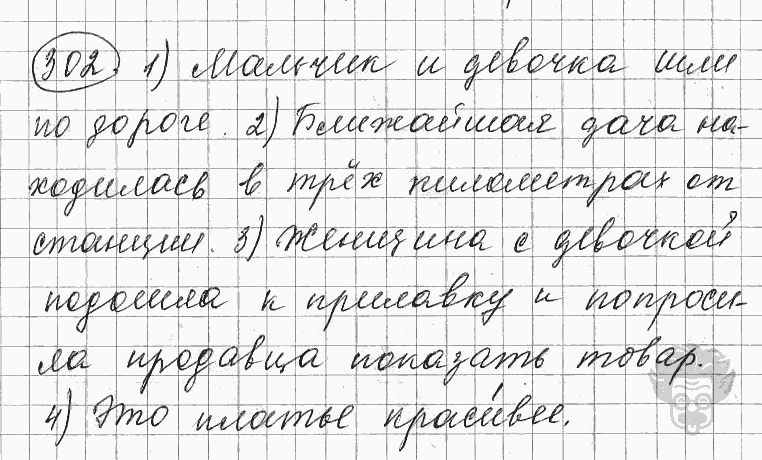 302. 1) Мальчик и девочка шли
по дороге. 2) Ближайшая дача на-
ходилась в трёх километрах от
станции. 3) Женщина с девочкой
подошла к прилавку и попроси-
ла продавца показать товар.
4) Это платье краси́вее.